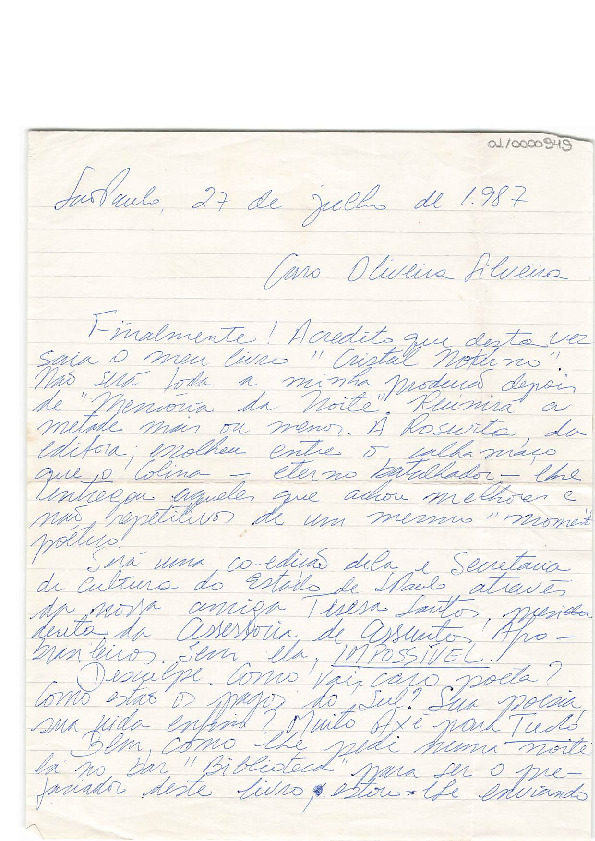 01/0000949
São Paulo, 27 de julho de 1.987
Caro Oliveira Silveira
Finalmente! Acredito que desta vez
saia o meu livro "Cristal Noturno".
Não será toda a minha produção depois
de "Memória da Noite". Reunirá a
metade mais ou menos. A Roswita, da
editora, escolheu entre o calhamaço
que o Colina – eterno batalhador – lhe
entregou aqueles que achou melhores e
não repetitivos de um mesmo "moment
poético".
Será uma co-edição dela e Secretaria
de Cultura do Estado de S Paulo através
da nossa amiga Teresa Santos,
da Assessoria de Assuntos Afro-
brasileiros. Sem ela, IMPOSSÍVEL.
Desculpe. Como vai, caro poeta?
Como estão os pagos do Sul? Sua poesia,
sua vida enfim? Muito Axé para Tudo
Bem, como lhe pedi numa noite
lá no bar "Biblioteca" para ser o pre-
faciador deste livro, estou-lhe enviando